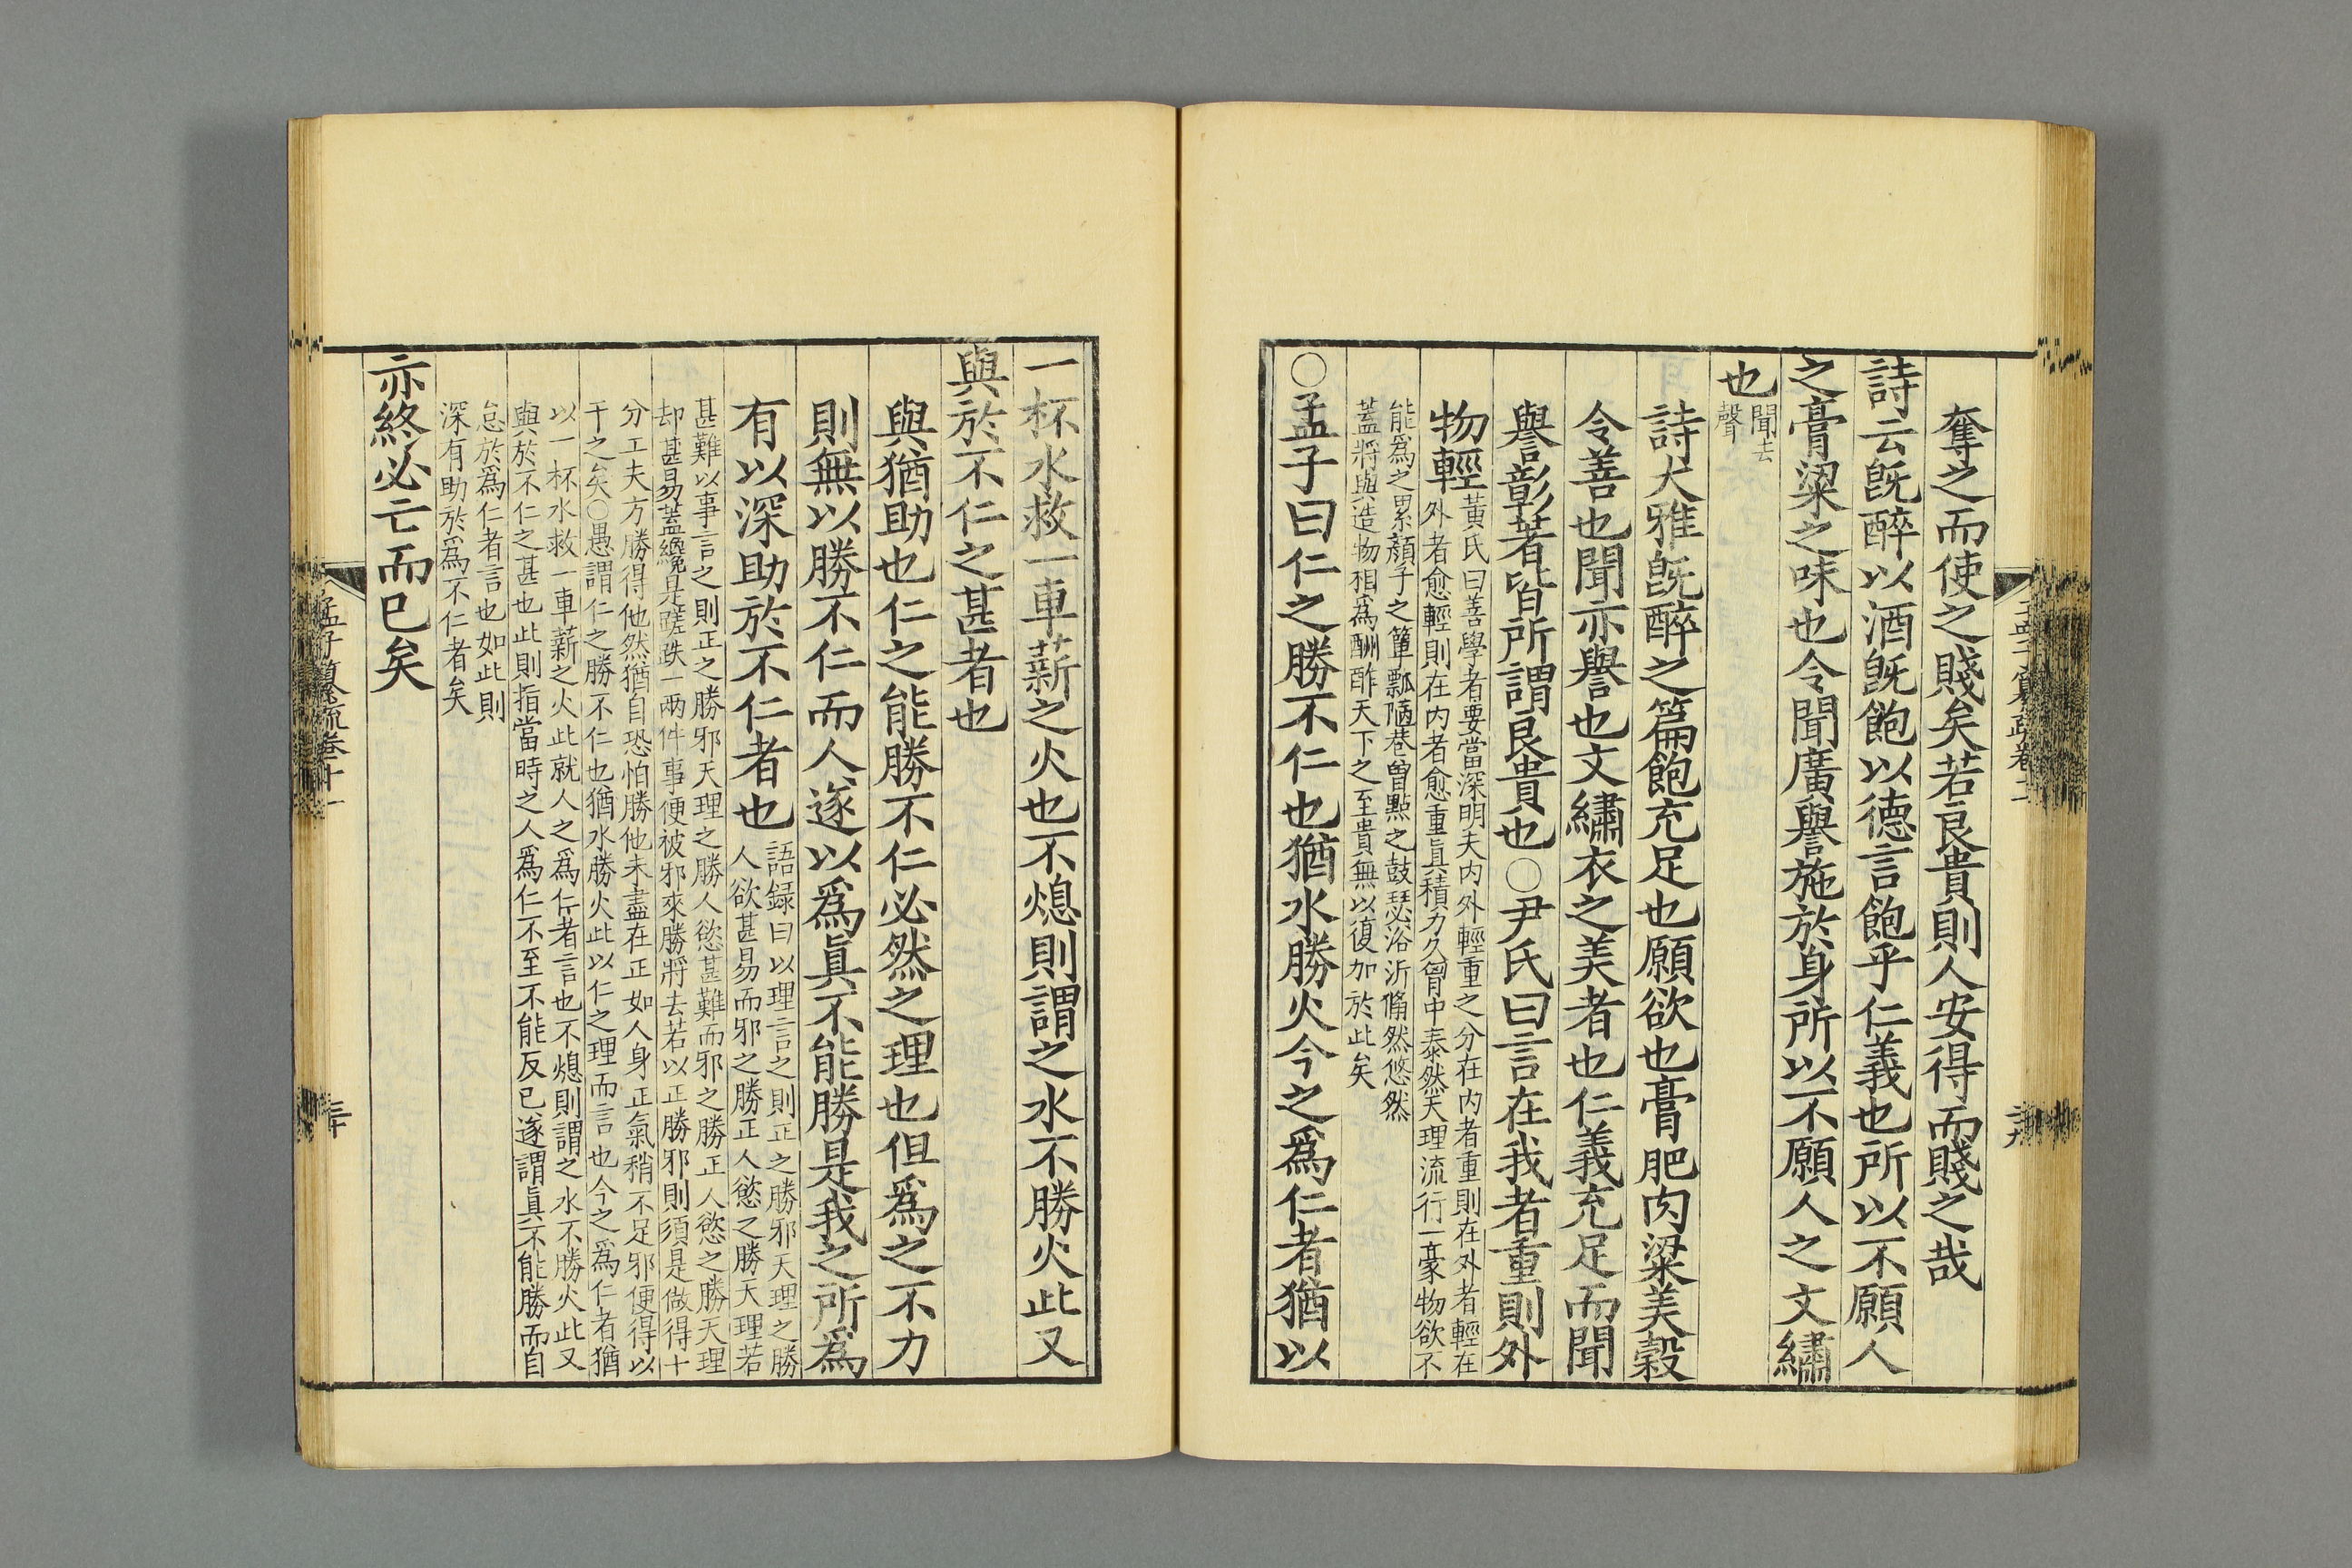 奪之而使之賤矣若良貴則人安得而賤之哉
詩云旣醉以酒旣飽以德言飽乎仁義也所以不願人
之膏粱之味也令聞廣譽施於身所以不願人之文繡
也
聞去
聲
詩大雅旣醉之篇飽充足也願欲也膏肥肉粱美穀
令善也聞亦譽也文繡衣之美者也仁義充足而聞
譽彰著皆所謂良貴也○尹氏曰言在我者重則外
物輕
黃氏曰善學者要當深明夫内外輕重之分在内者重則在外者輕在
外者愈輕則在内者愈重眞積力久胷中泰然天理流行一豪物欲不
能爲之累顏子之簞瓢陋巷曾點之鼓瑟浴沂翛然悠然
蓋將與造物相爲酬酢天下之至貴無以復加於此矣
○孟子曰仁之勝不仁也猶水勝火今之爲仁者猶以
孟子纂疏卷十一
一杯水救一車薪之火也不熄則謂之水不勝火此又
與於不仁之甚者也
與猶助也仁之能勝不仁必然之理也但爲之不力
則無以勝不仁而人遂以爲眞不能勝是我之所爲
有以深助於不仁者也
語録曰以理言之則正之勝邪天理之勝
人欲甚易而邪之勝正人慾之勝天理若
甚難以事言之則正之勝邪天理之勝人慾甚難而邪之勝正人慾之勝天理
却甚易蓋纔是蹉跌一兩件事便被邪來勝將去若以正勝邪則須是做得十
分工夫方勝得他然猶自恐怕勝他未盡在正如人身正氣稍不足邪便得以
干之矣○愚謂仁之勝不仁也猶水勝火此以仁之理而言也今之爲仁者猶
以一杯水救一車薪之火此就人之爲仁者言也不熄則謂之水不勝火此又
與於不仁之甚也此則指當時之人爲仁不至不能反已遂謂眞不能勝而自
怠於爲仁者言也如此則
深有助於爲不仁者矣
亦終必亡而已矣
孟子纂疏卷十一
三十